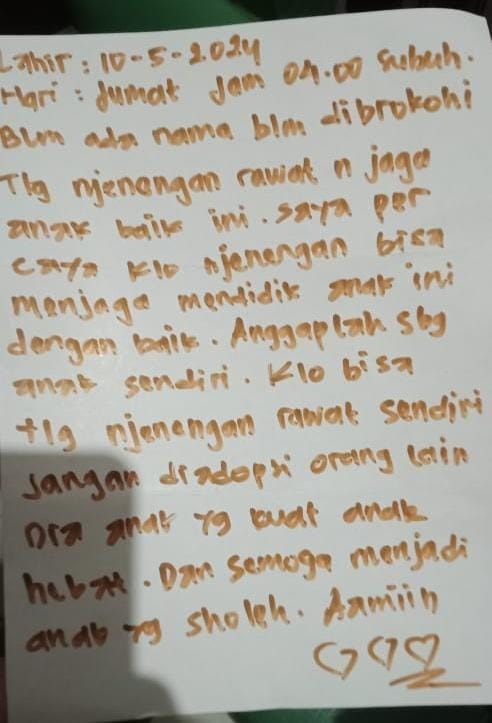 Lahir : 10-5-2024
Hari : Jumat Jam 04.00 Subuh.
Blm ada nama blm dibrokohi
Tlg njenengan rawat n jaga
anak baik ini. saya per
caya Klo njenengan bisa
menjaga mendidik anak ini
dengan baik. Anggaplah sbg
anak sendiri. Klo bisa
tlg njenengan rawat sendiri
jangan diadopsi orang lain
Dia anak yg kuat anak
hebat. Dan semoga menjadi
anak yg sholeh. Aamiin